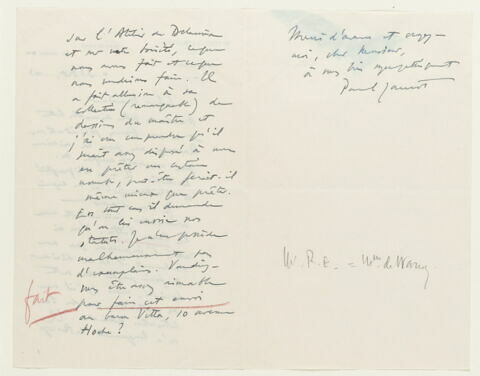 sur l'Atelier de Delacroix
et sur notre Société, ce que
nous avons fait et ce que
nous voudrions faire. Il
a fait allusion à sa
collection (remarquable) de
dessins du maître et
j'ai cru comprendre qu'il
serait assez disposé à nous
en prêter un certain
nombre, peut-être ferait-il
même mieux que prêter.
En tout cas, il demande
qu'on lui envoie nos
statuts. Je n'en possède
malheureusement pas
d'exemplaire. Voudriez-
vous être assez aimable
pour faire cet envoi
au baron Vitta, 10 avenue
Hoche ?
fait
Merci d'avance et croyez-
moi, cher Monsieur,
à mes bien sympathiques
Paul Jamot